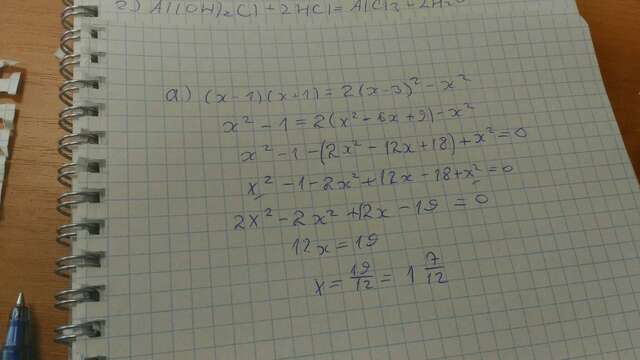 г) Al(OH)₂Cl + 2HCl = AlCl₃ + 2H₂O
а) (x-1)(x+1) = 2(x-3)² - x²
x² - 1 = 2(x² - 6x + 9) - x²
x² - 1 - (2x² - 12x + 18) + x² = 0
x² - 1 - 2x² + 12x - 18 + x² = 0
2x² - 2x² + 12x - 19 = 0
12x = 19
x = 19/12 = 1 7/12